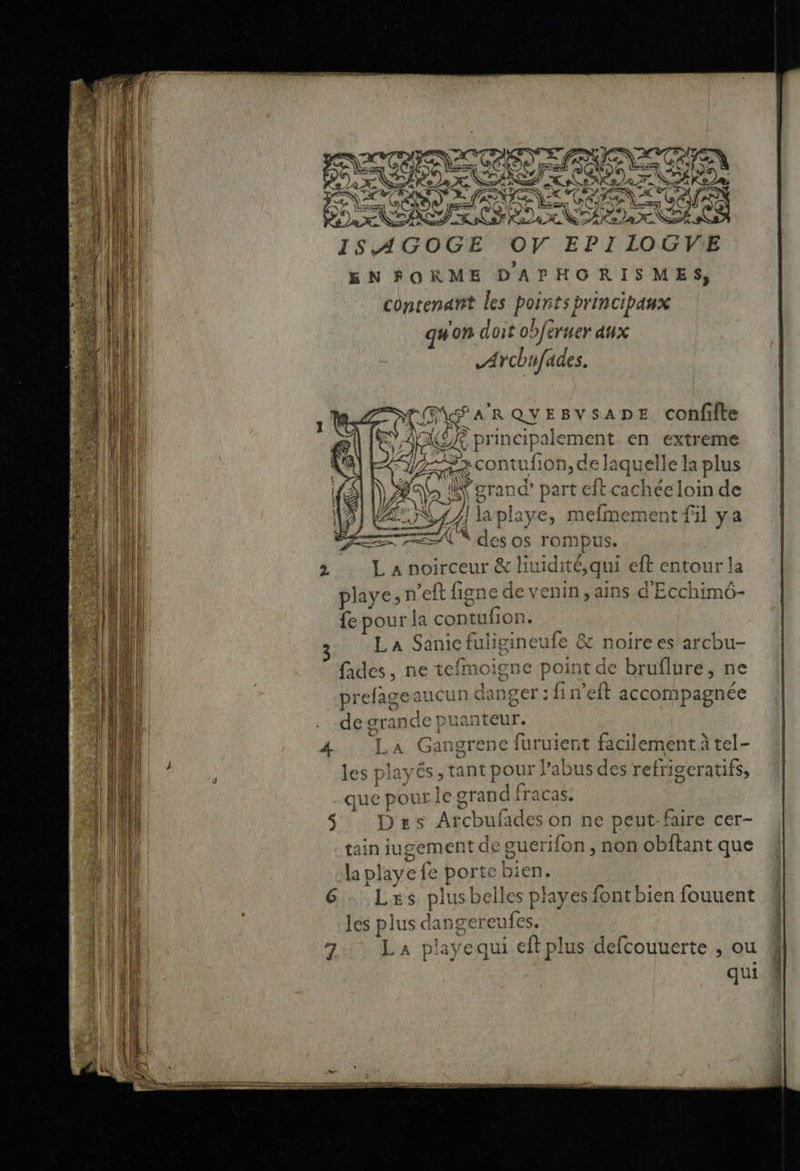 ISAGOGE OV EPILOGVE
EN FORME D'APHORISMES,
contenant les points principaux
qu'on doit obſeruer aux
Arcbuſades.
1 L'ARQVEBVSADE conſiſte
principalement en extreme
contuſion, de laquelle la plus
grand' part eſt cachée loin de
la playe, meſmement ſ'il y a
des os rompus.
2 LA noirceur & liuidité, qui eſt entour la
playe, n'eſt ſigne de venin, ains d'Ecchimó-
ſe pour la contuſion.
3 LA Sanie fuligineuſe & noire es arcbu-
ſades, ne teſmoigne point de bruſlure, ne
preſage aucun danger : ſi n'eſt accompagnée
de grande puanteur.
4 LA Gangrene ſuruient facilement à tel-
les playés, tant pour l'abus des refrigeratifs,
que pour le grand fracas.
5 DES Arcbuſades on ne peut faire cer-
tain iugement de gueriſon, non obſtant que
la playe ſe porte bien.
6 LES plus belles playes ſont bien ſouuent
les plus dangereuſes.
7 LA playe qui eſt plus deſcouuerte, ou
qui